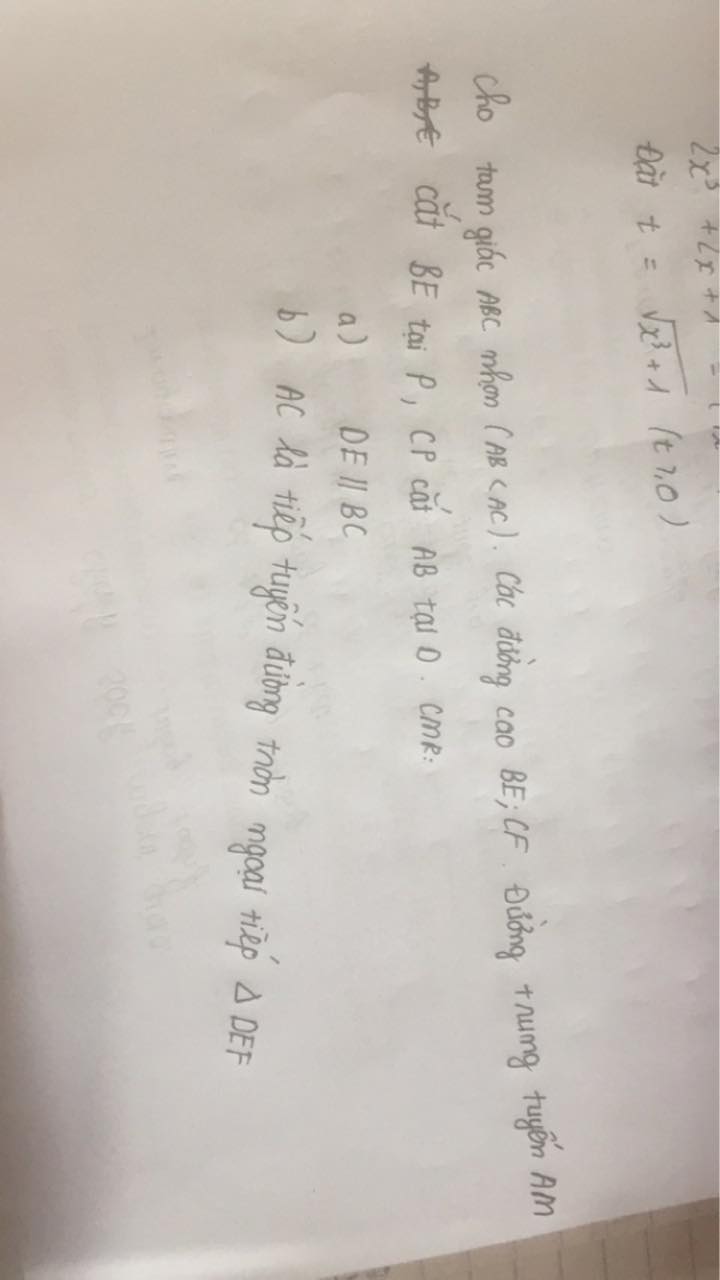 2x³ + 2x + 1 =
Đặt t = √x³ + 1 (t ≥ 0)
Cho tam giác ABC nhọn (AB < AC). Các đường cao BE; CF. Đường trung tuyến AM
cắt BE tại P, CP cắt AB tại D. CMR:
a) DE // BC
b) AC là tiếp tuyến đường tròn ngoại tiếp Δ DEF